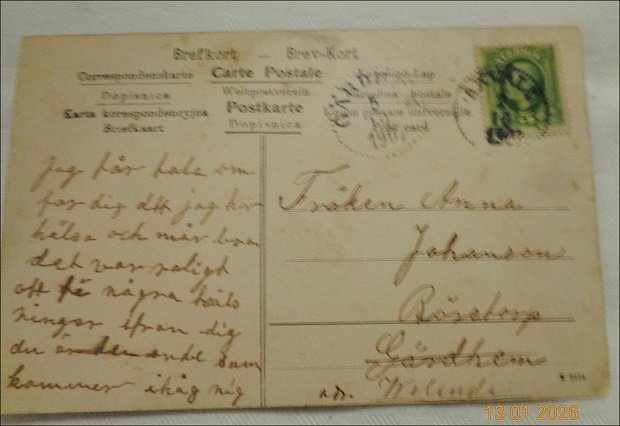 Brefkort — Brev-Kort
Correspondenzkarte Carte Postale
Dopisnice Weltpostverein
Karta korespondencyjna Postkarte
Briefkaart Dopisnica
Jag får tala om
for dig att jag har
hälsa och mår bra
det var roligt
att få några häls
ningar ifrån dig
du är den ende som
kommer ihåg mig
Fröken Anna
Johanson
Rösetorp
Gärdhem
adr. Welanda
13 01 2026